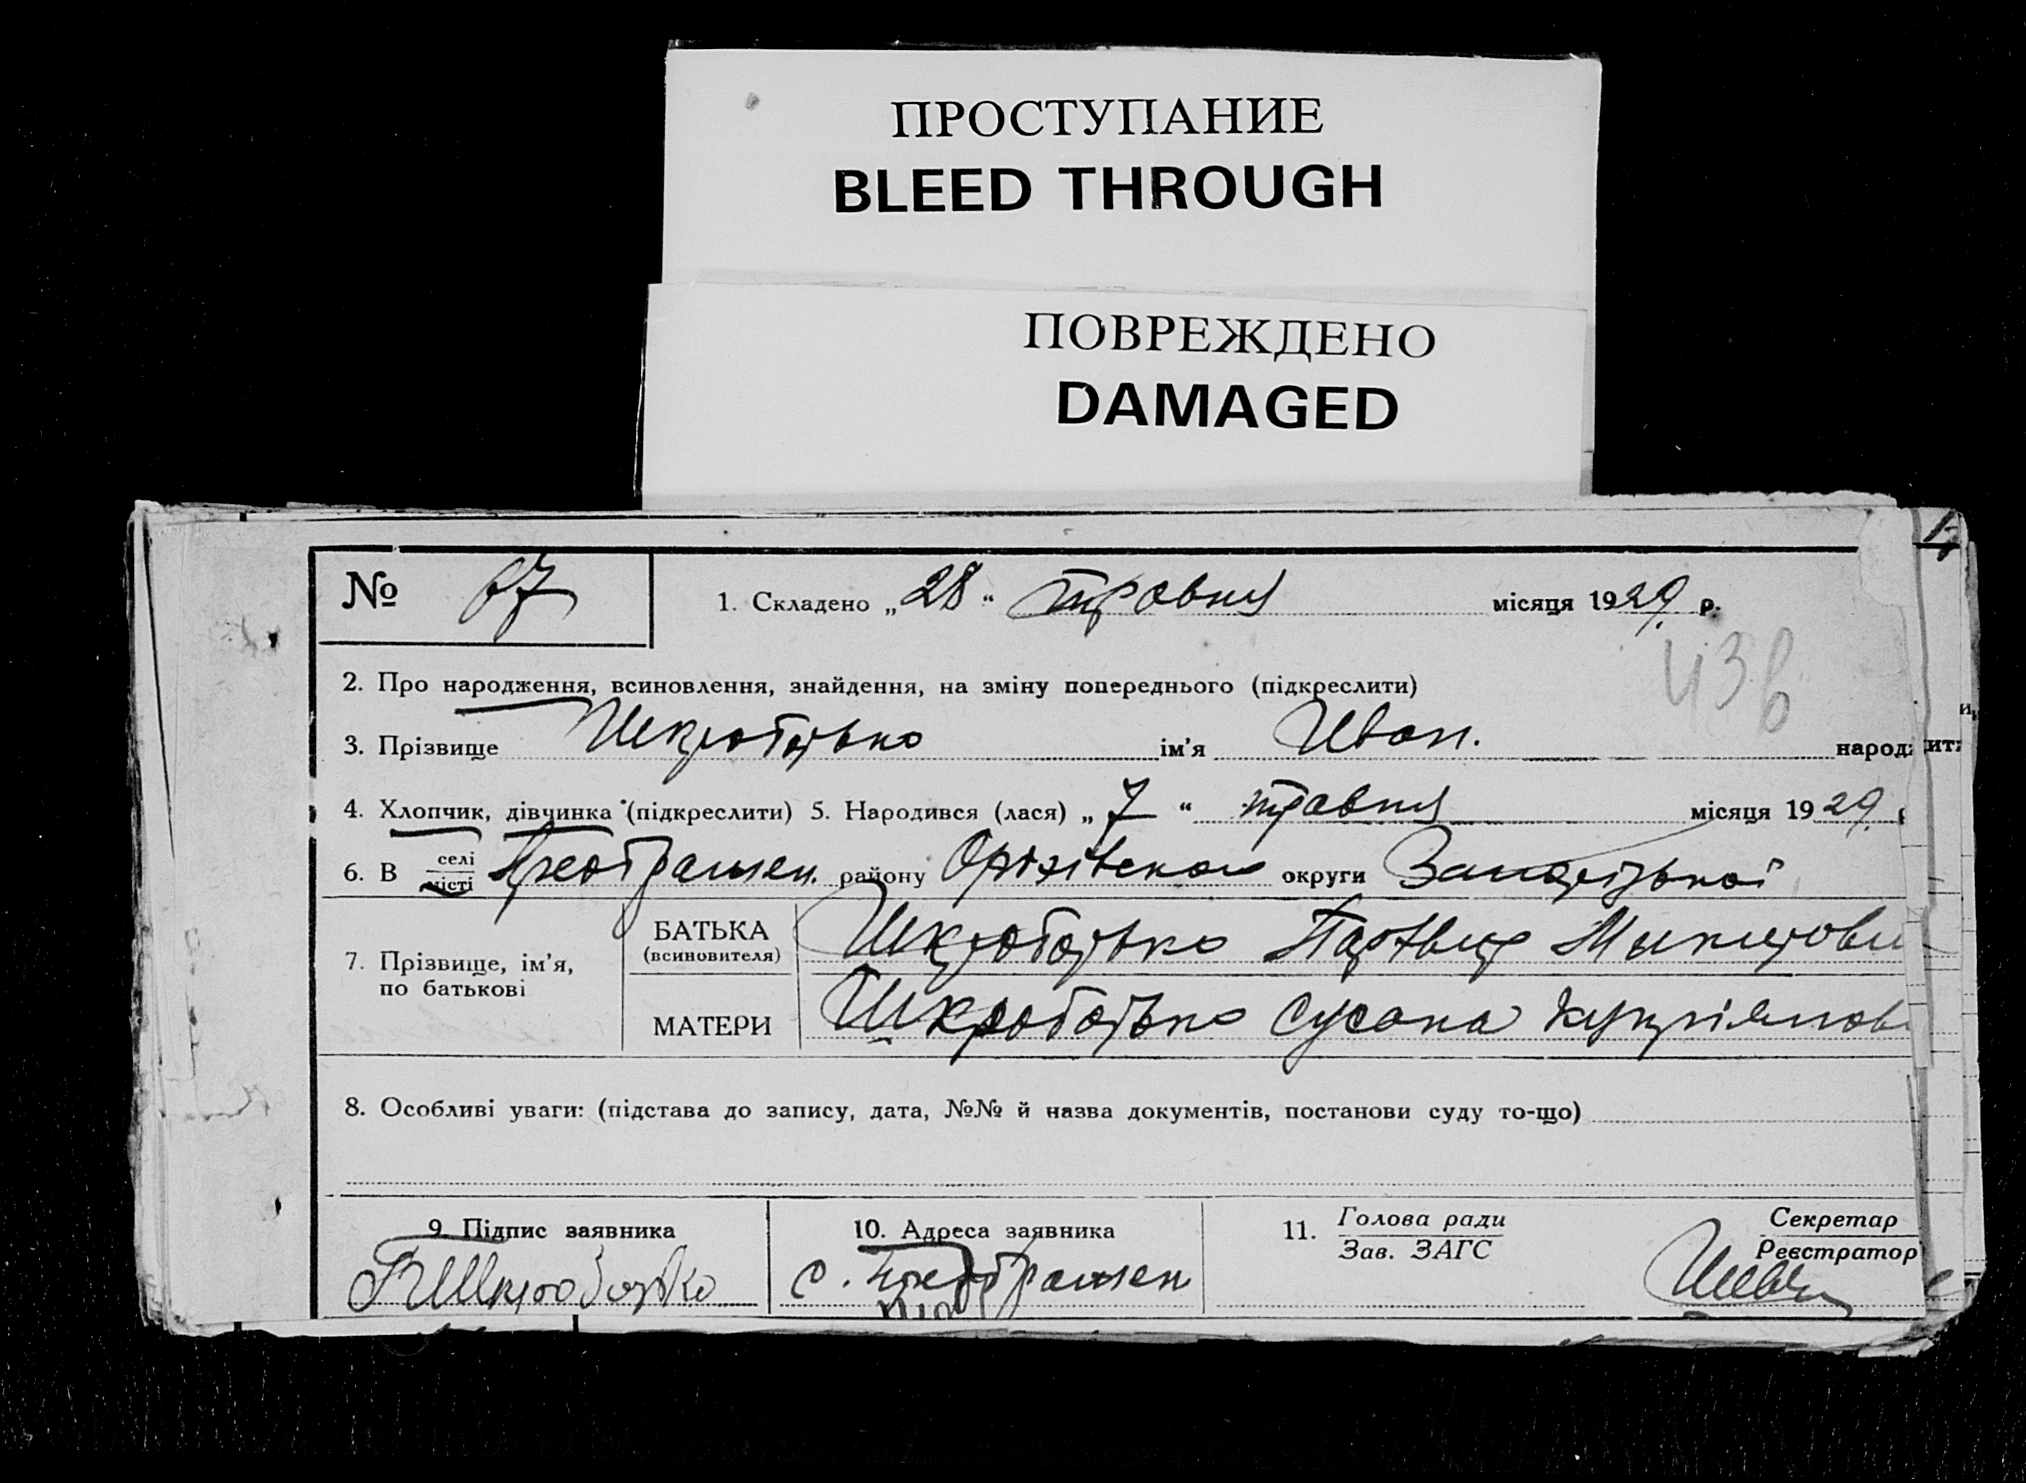 ПРОСТУПАНИЕ
BLEED THROUGH
ПОВРЕЖДЕНО
DAMAGED
№ 67 1. Складено „28“ травня місяця 1929 р.
43в
2. Про народження, всиновлення, знайдення, на зміну попереднього (підкреслити)
3. Прізвище Шкробатько ім'я Иван. народ
4. Хлопчик, дівчинка (підкреслити) 5. Народився (лася) „7“ травня місяця 1929
6. В селі місті Преображен. району Оріхівського округи Запорізької
7. Прізвище, ім'я, по батькові
БАТЬКА (всиновителя) Шкробатько Микитови
МАТЕРИ Шкробатько Сусана Купріянов
8. Особливі уваги: (підстава до запису, дата, №№ й назва документів, постанови суду то-що)
9. Підпис заявника 10. Адреса заявника 11. Голова ради Секретар
Зав. ЗАГС Реєстратор
Шкробатько с. Преображен